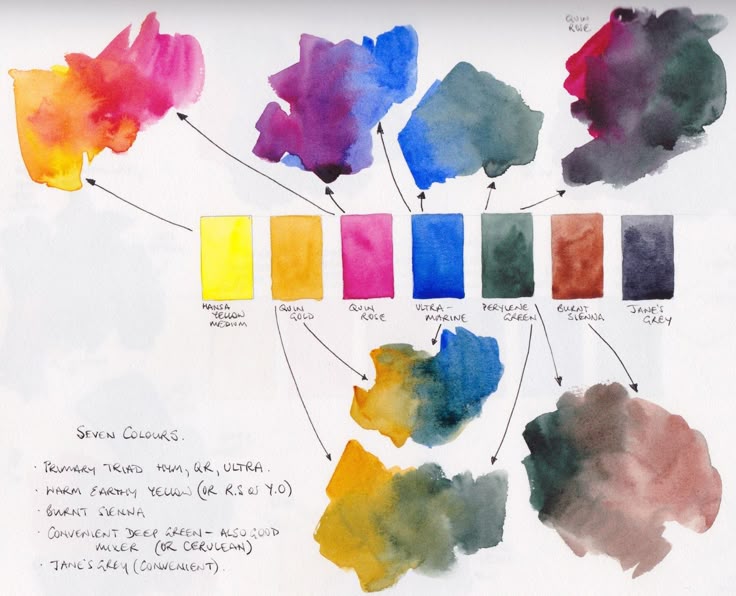 QUIN
ROSE
HANSA
YELLOW
MEDIUM
QUIN
GOLD
QUIN
ROSE
ULTRA-
MARINE
PERYLENE
GREEN
BURNT
SIENNA
JANE'S
GREY
SEVEN COLOURS.
· PRIMARY TRIAD HYM, QR, ULTRA.
· WARM EARTHY YELLOW (OR R.S OR Y.O)
· BURNT SIENNA
· CONVENIENT DEEP GREEN - ALSO GOOD
MIXER (OR CERULEAN)
· JANE'S GREY (CONVENIENT).